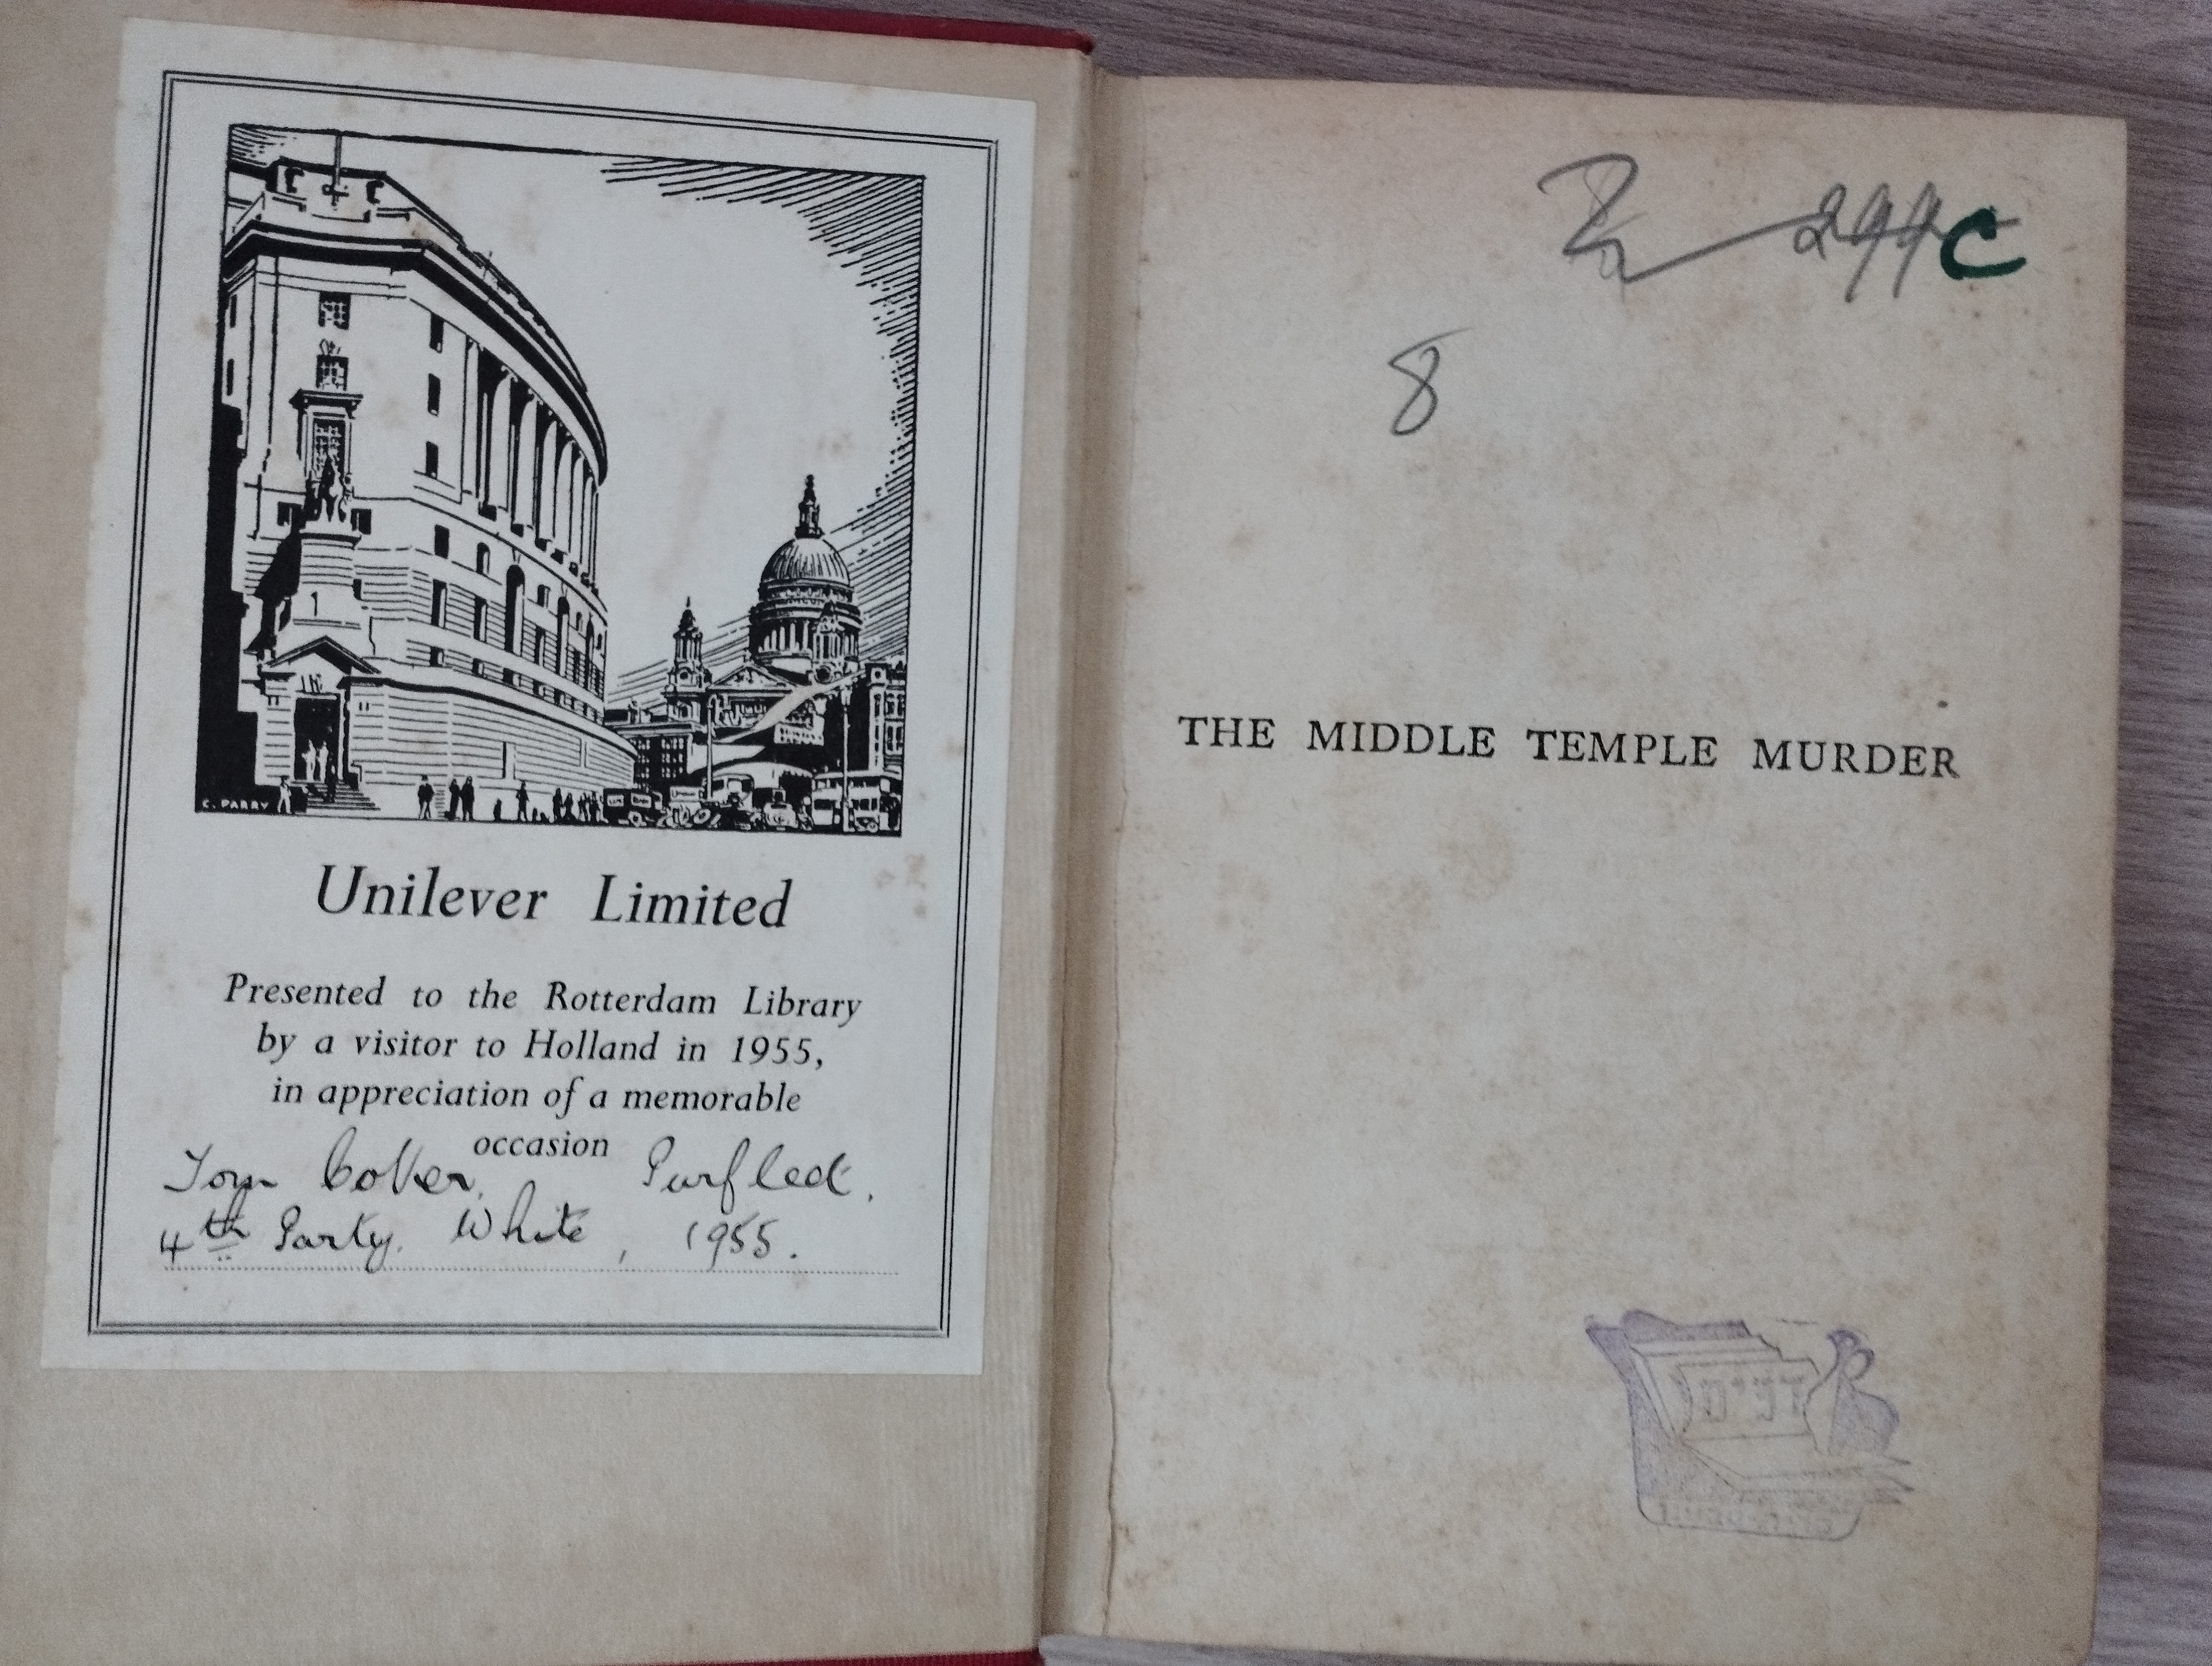 C. PARRY
Unilever Limited
Presented to the Rotterdam Library
by a visitor to Holland in 1955,
in appreciation of a memorable
occasion
Tom Coker, Purfleet.
4th Party. White, 1955.
299 C
8
THE MIDDLE TEMPLE MURDER